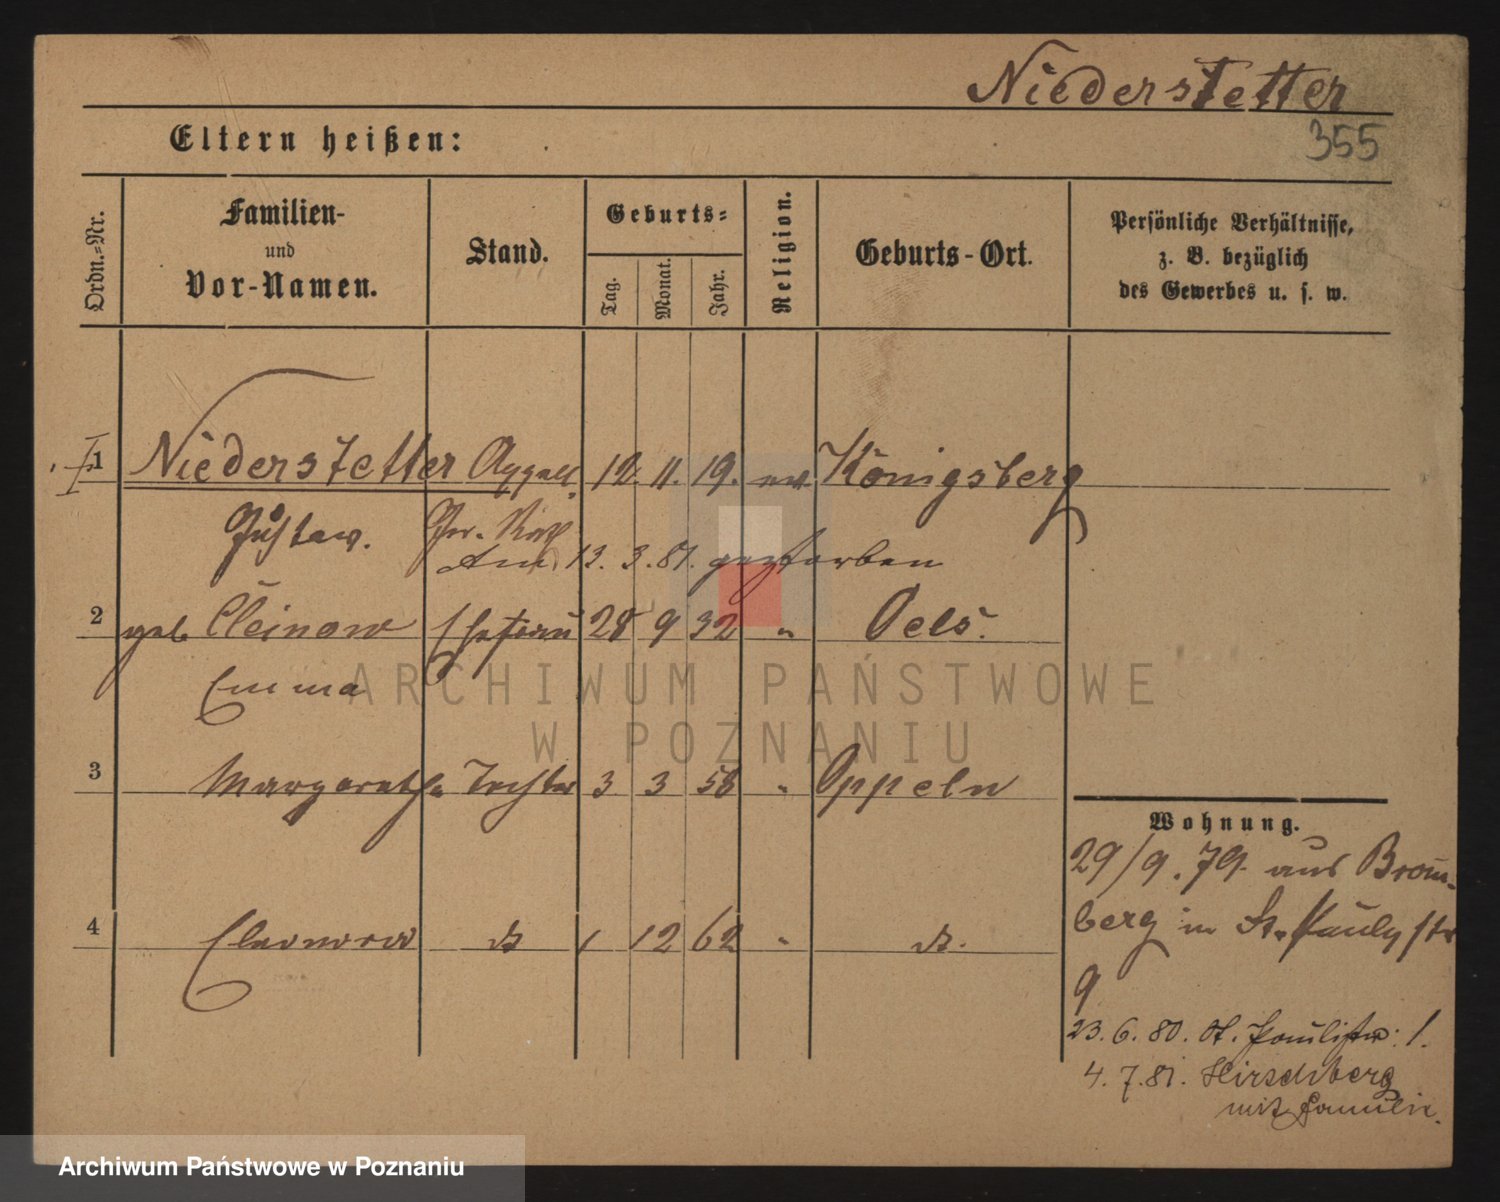 Niederstetter
355
Eltern heißen:
Ordn.-Nr.
Familien-
und
Vor-Namen.
Stand.
Geburts-
Tag.
Monat.
Jahr.
Religion.
Geburts-Ort.
Persönliche Verhältnisse,
z. B. bezüglich
des Gewerbes u. s. w.
1 Niederstetter 12. 11. 19. ev. Königsberg
Gustav.
Am 13. 3. 81. gestorben
2 geb Cleinow Ehefrau 28 9 32 " Oels.
Emma
3 Margarethe Tochter 3 3 58 " Oppeln
4 Eleonora do 1 12 62 " do.
Wohnung.
29/9. 79. aus Brom-
berg in St. Paulystr
9
23. 6. 80. St. Paulistr: 1.
4. 7. 81. Hirschberg
mit Familie.
ARCHIWUM PAŃSTWOWE
W POZNANIU
Archiwum Państwowe w Poznaniu